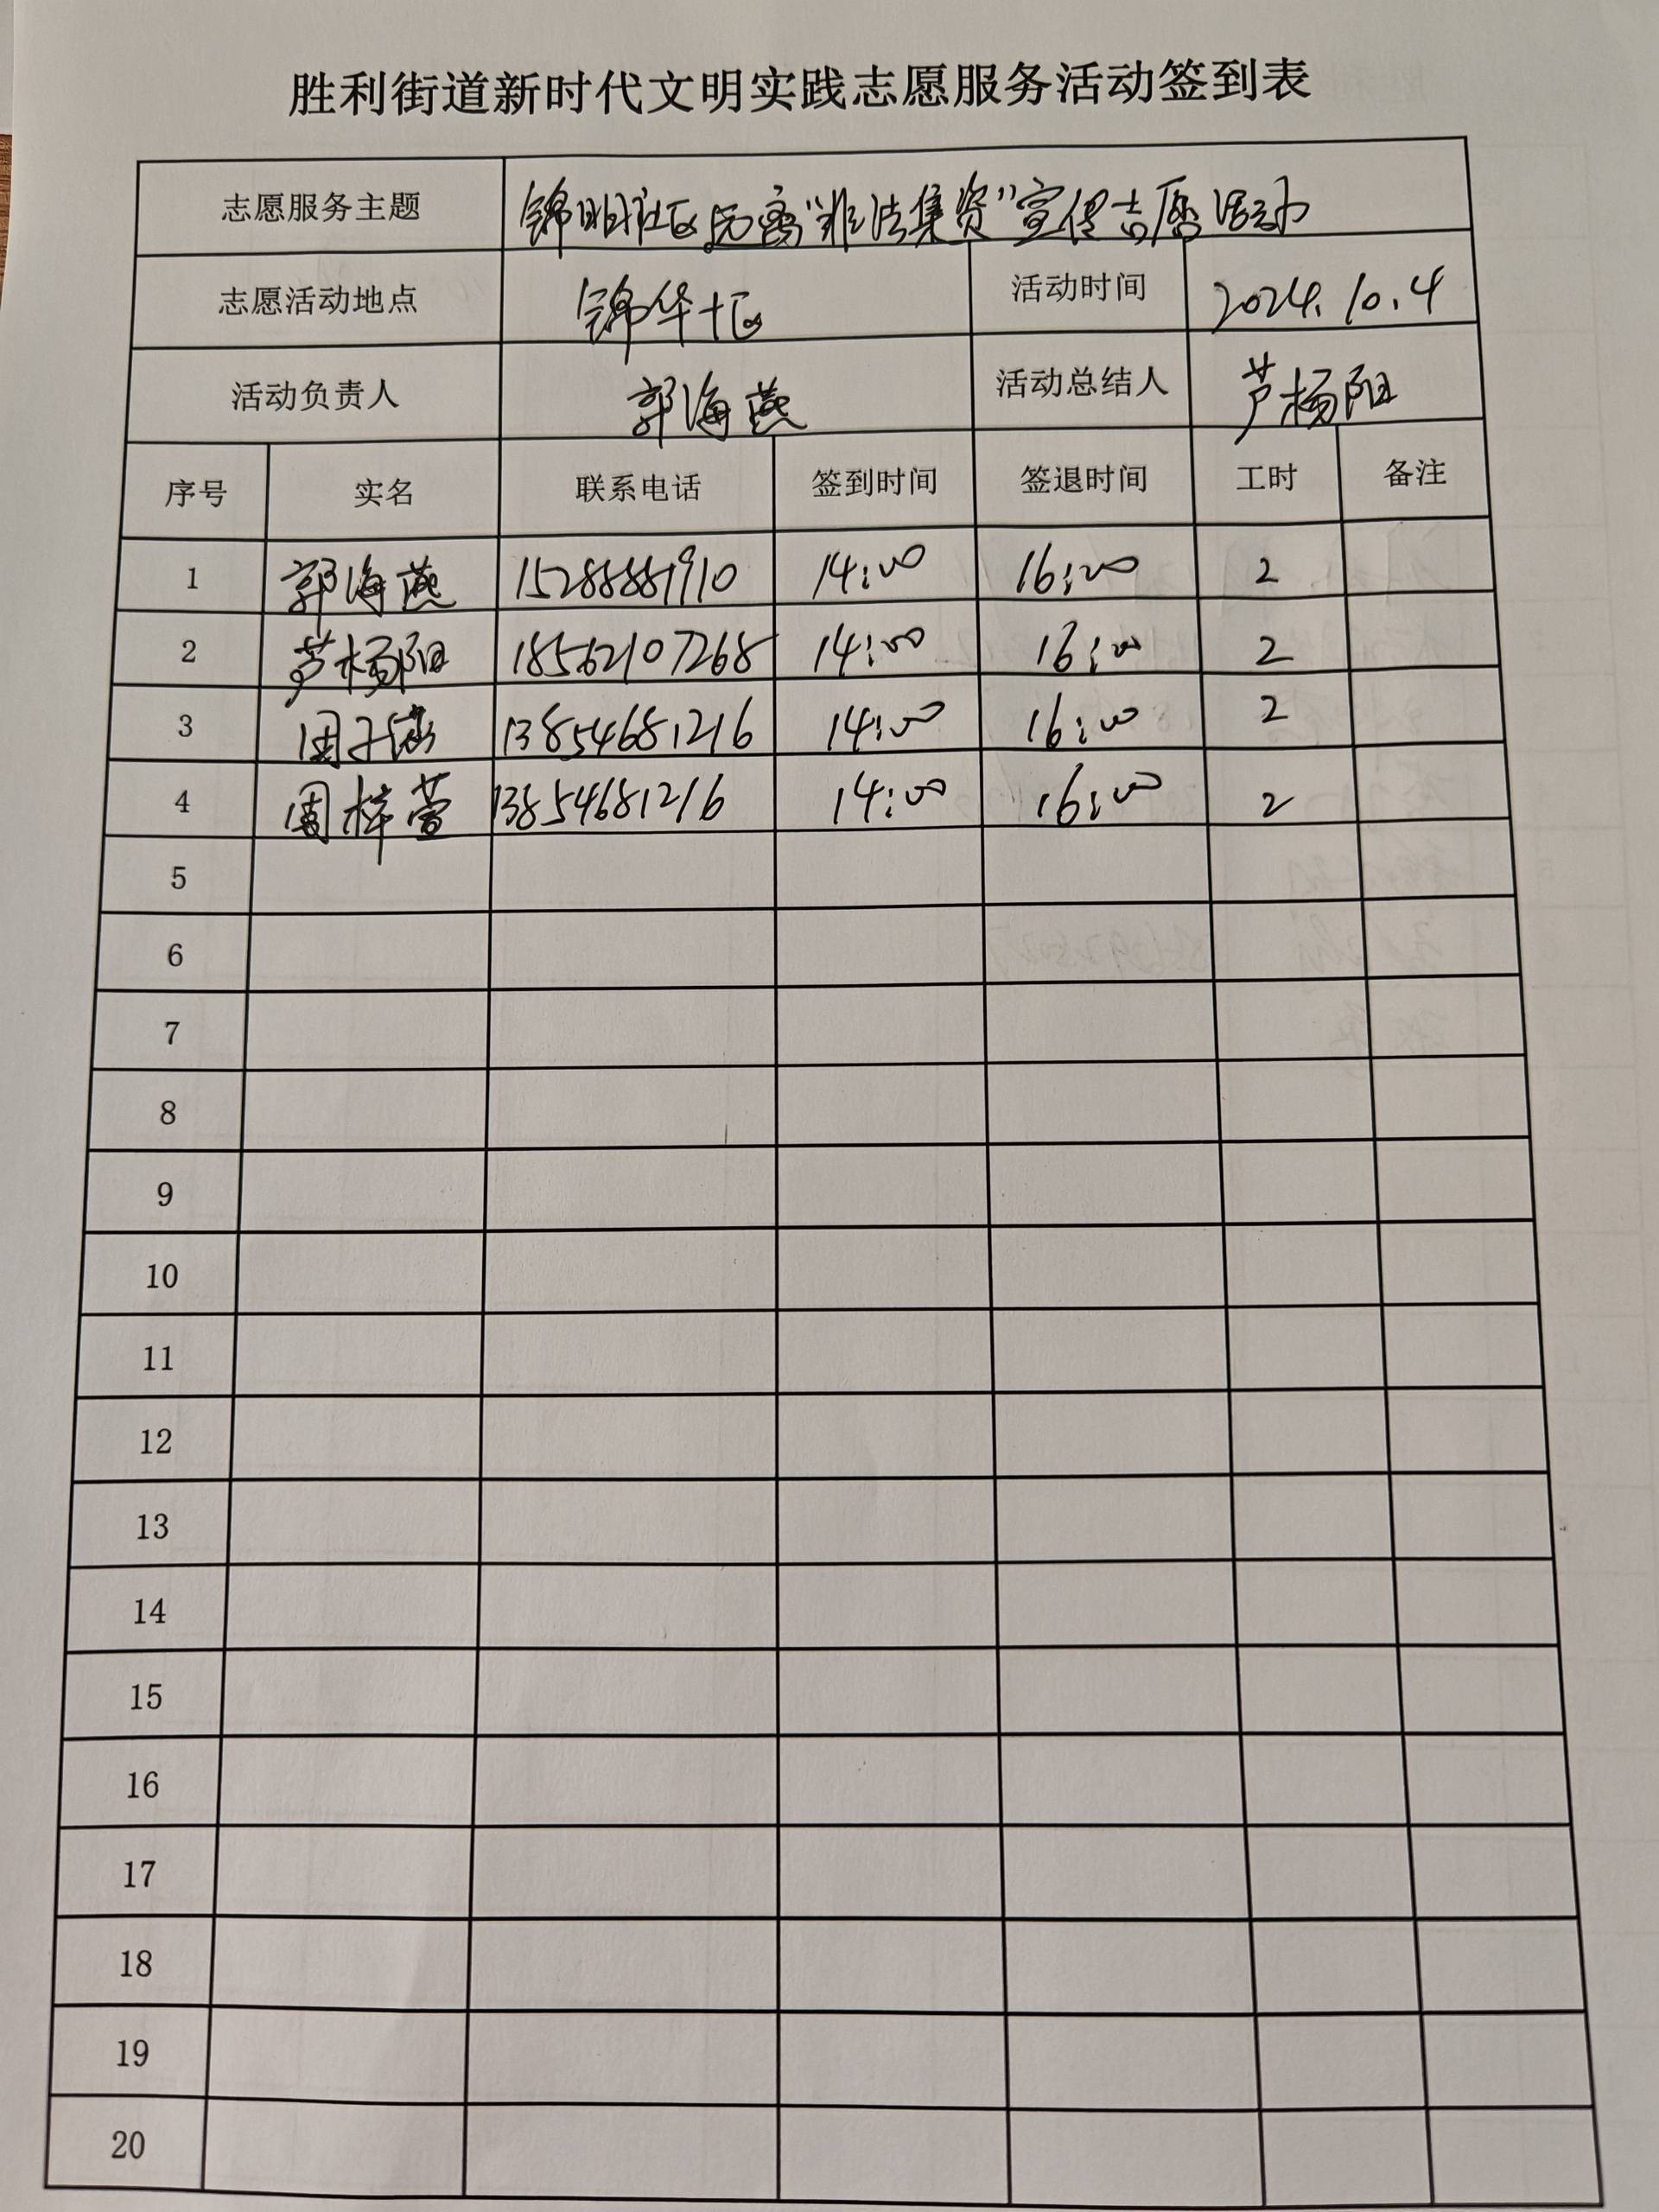 胜利街道新时代文明实践志愿服务活动签到表
志愿服务主题 锦明社区远离“非法集资”宣传志愿活动
志愿活动地点 锦华十区 活动时间 2024.10.4
活动负责人 郭海燕 活动总结人 芦杨阳
序号 实名 联系电话 签到时间 签退时间 工时 备注
1 郭海燕 15288881910 14:00 16:00 2
2 芦杨阳 18562107268 14:00 16:00 2
3 周子涵 13854681216 14:00 16:00 2
4 周梓萱 13854681216 14:00 16:00 2
5
6
7
8
9
10
11
12
13
14
15
16
17
18
19
20